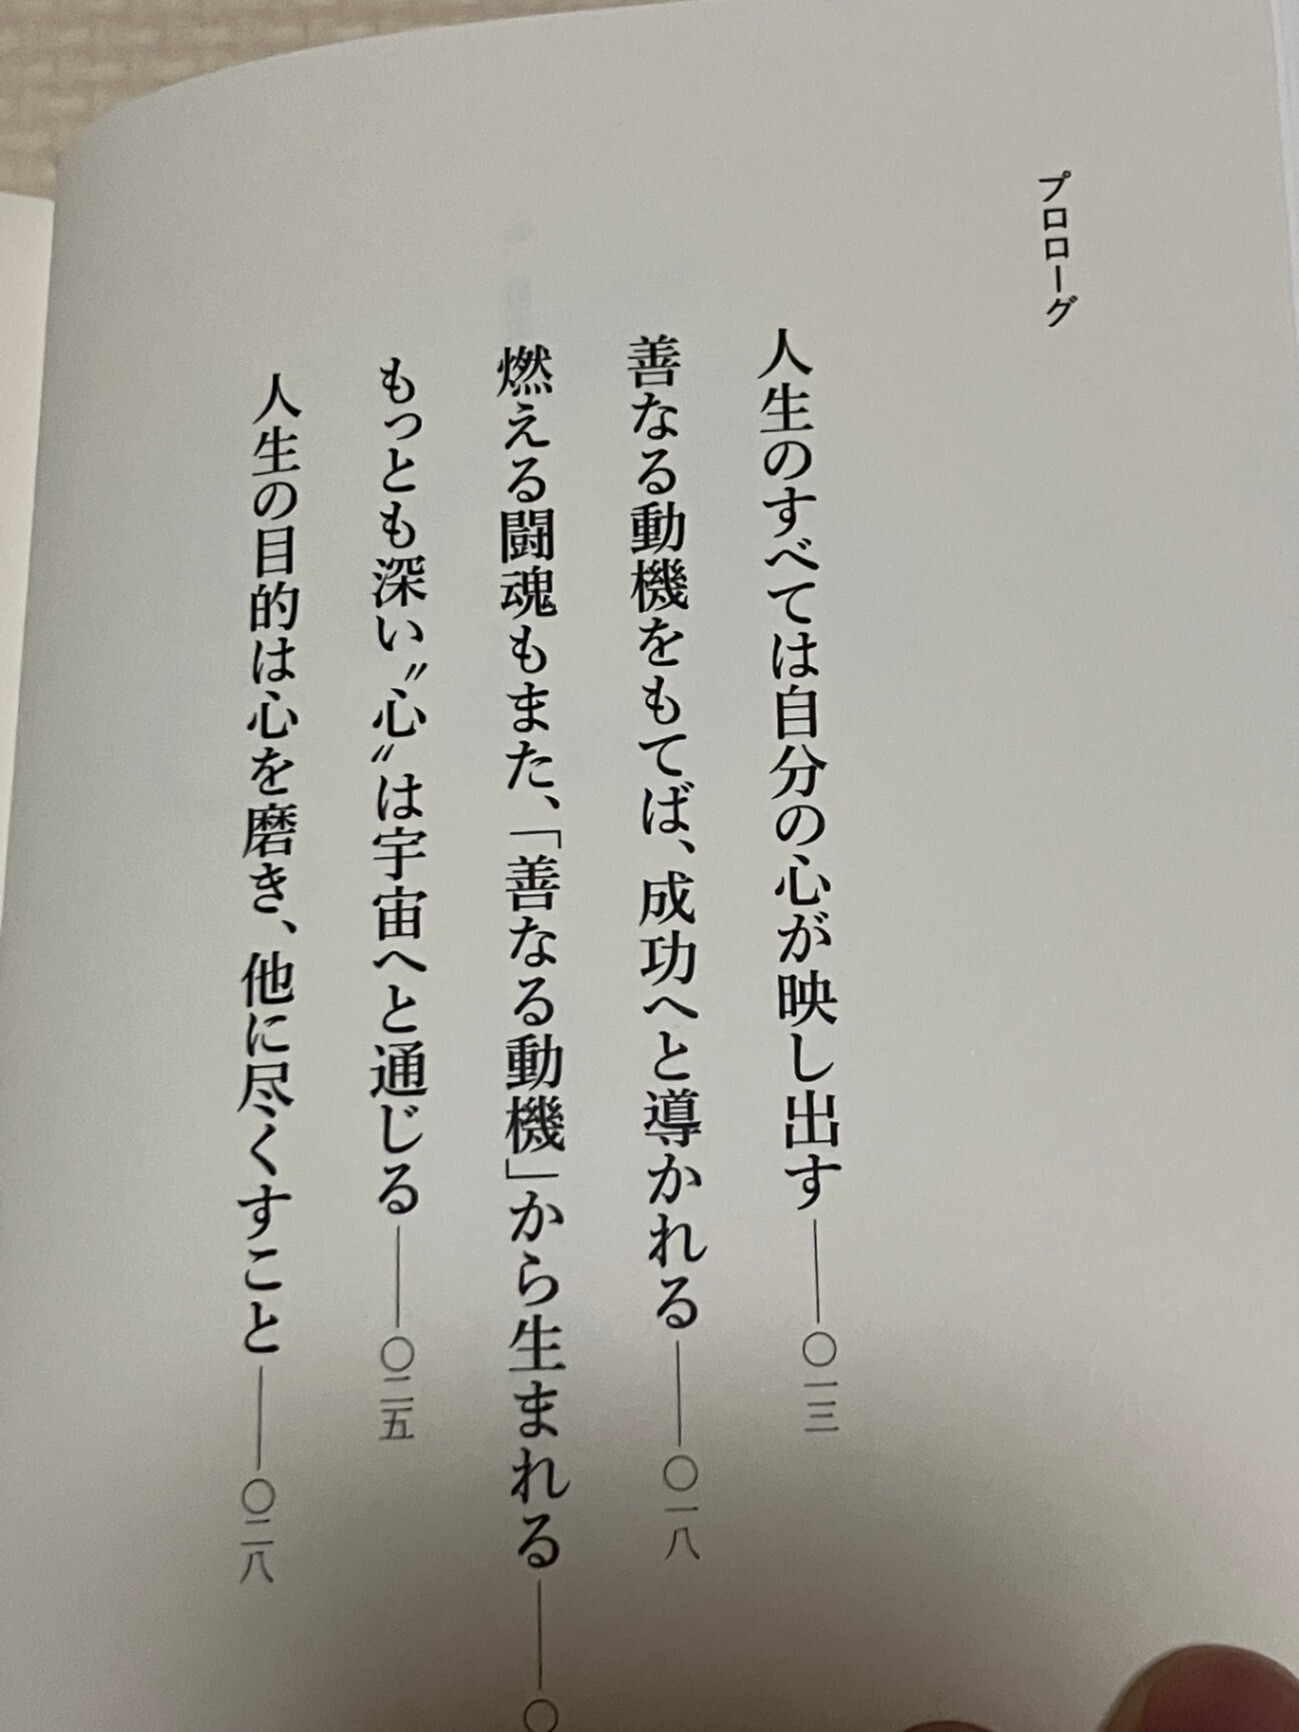 プロローグ
人生のすべては自分の心が映し出す――〇一三
善なる動機をもてば、成功へと導かれる――〇一八
燃える闘魂もまた、「善なる動機」から生まれる――〇
もっとも深い〝心〟は宇宙へと通じる――〇二五
人生の目的は心を磨き、他に尽くすこと――〇二八